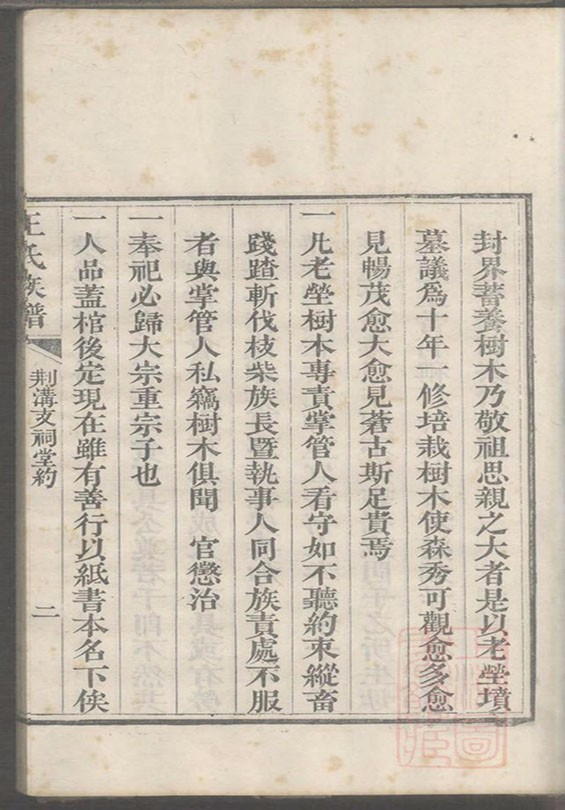 封界蓄養樹木乃敬祖思親之大者是以老塋墳
墓議爲十年一修培栽樹木使森秀可觀愈多愈
見暢茂愈大愈見蒼古斯足貴焉
一凡老塋樹木專責掌管人看守如不聽約束縱畜
踐蹅斬伐枝柴族長暨執事人同合族責處不服
者與掌管人私竊樹木俱聞　官懲治
一奉祀必歸大宗重宗子也
一人品蓋棺後定現在雖有善行以紙書本名下俟
王氏族譜
荆溝支祠堂約
二